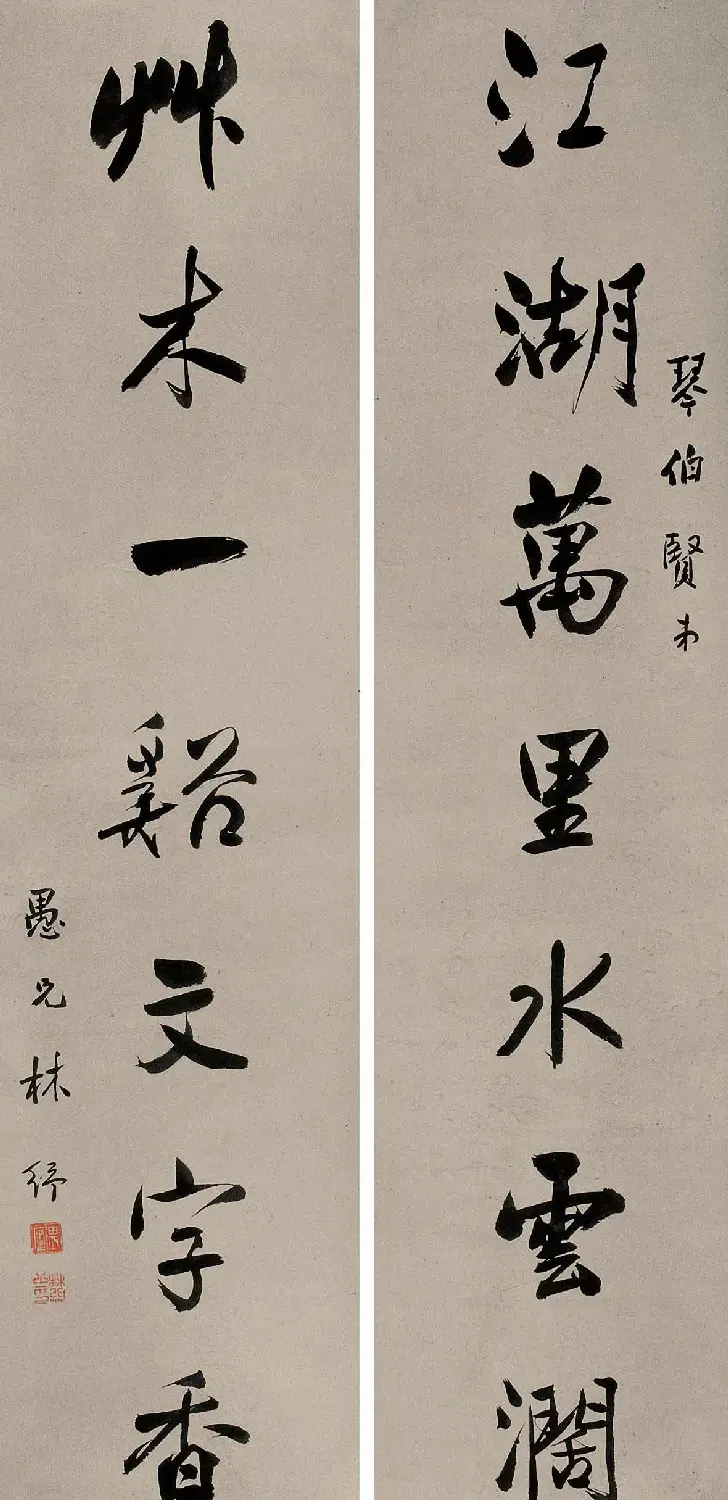 琴伯賢弟
江湖萬里水雲濶
艸木一谿文字香
愚兄林紓
畏廬